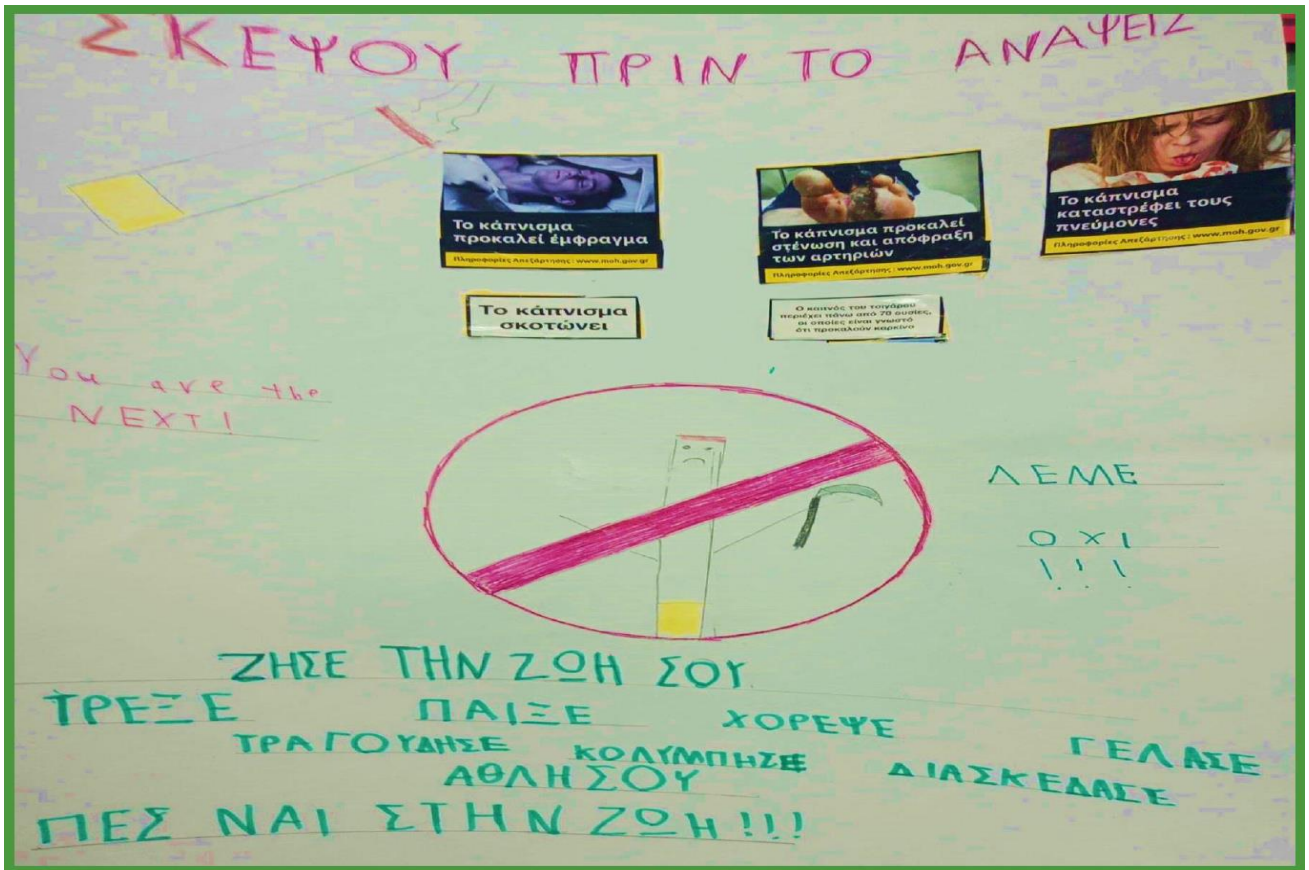 ΣΚΕΨΟΥ ΠΡΙΝ ΤΟ ΑΝΑΨΕΙΣ
Το κάπνισμα
προκαλεί έμφραγμα
Πληροφορίες Απεξάρτησης: www.moh.gov.gr
Το κάπνισμα προκαλεί
στένωση και απόφραξη
των αρτηριών
Πληροφορίες Απεξάρτησης: www.moh.gov.gr
Το κάπνισμα
καταστρέφει τους
πνεύμονες
Πληροφορίες Απεξάρτησης: www.moh.gov.gr
Το κάπνισμα
σκοτώνει
Ο καπνός του τσιγάρου
περιέχει πάνω από 70 ουσίες,
οι οποίες είναι γνωστό
ότι προκαλούν καρκίνο
You are the
NEXT!
ΛΕΜΕ
ΟΧΙ
!!!
ΖΗΣΕ ΤΗΝ ΖΩΗ ΣΟΥ
ΤΡΕΞΕ ΠΑΙΞΕ ΧΟΡΕΨΕ ΓΕΛΑΣΕ
ΤΡΑΓΟΥΔΗΣΕ ΚΟΛΥΜΠΗΣΕ ΔΙΑΣΚΕΔΑΣΕ
ΑΘΛΗΣΟΥ
ΠΕΣ ΝΑΙ ΣΤΗΝ ΖΩΗ!!!